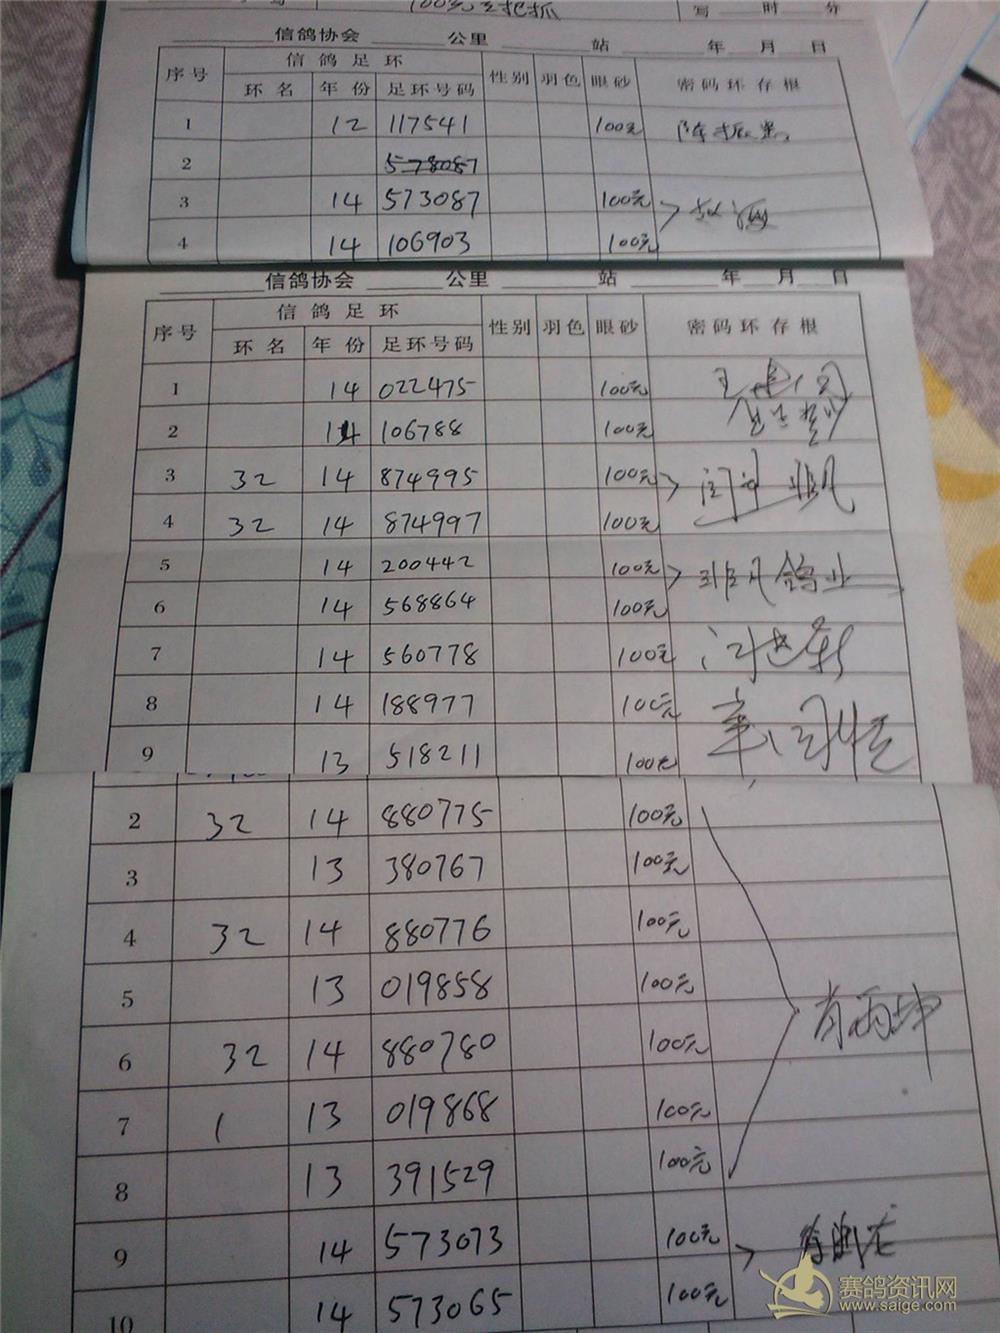 100元
写 时 分
信鸽协会 公里 站 年 月 日
序号 信鸽足环 性别 羽色 眼砂 密码环存根
环名 年份 足环号码
1 12 117541 100元 陈振
2 578087
3 14 573087 100元
4 14 106903 100元
信鸽协会 公里 站 年 月 日
序号 信鸽足环 性别 羽色 眼砂 密码环存根
环名 年份 足环号码
1 14 022475 100元
2 14 106788 100元
3 32 14 874995 100元
4 32 14 874997 100元
5 14 200442 100元 非凡鸽业
6 14 568864 100元
7 14 560778 100元
8 14 188977 100元
9 13 518211 100元
2 32 14 880775 100元
3 13 380767 100元
4 32 14 880776 100元
5 13 019858 100元 肖雨坤
6 32 14 880780 100元
7 1 13 019868 100元
8 13 391529 100元
9 14 573073 100元
10 14 573065 100元
赛鸽资讯网
www.saige.com